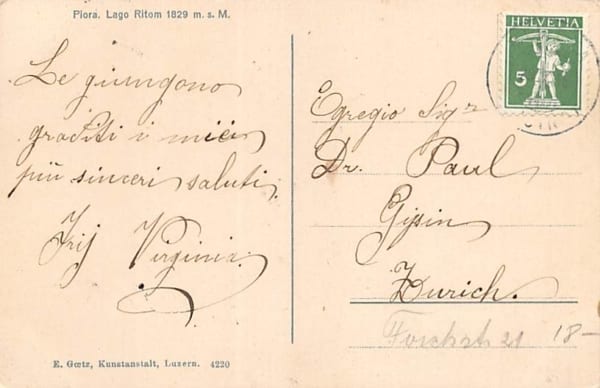 Piora. Lago Ritom 1829 m. s. M.
Le giungono
graditi i miei
più sinceri saluti.
Virginia
HELVETIA
5
Egregio Sigr
Dr. Paul
Gysin
Zurich.
18-
E. Gœtz, Kunstanstalt, Luzern. 4220